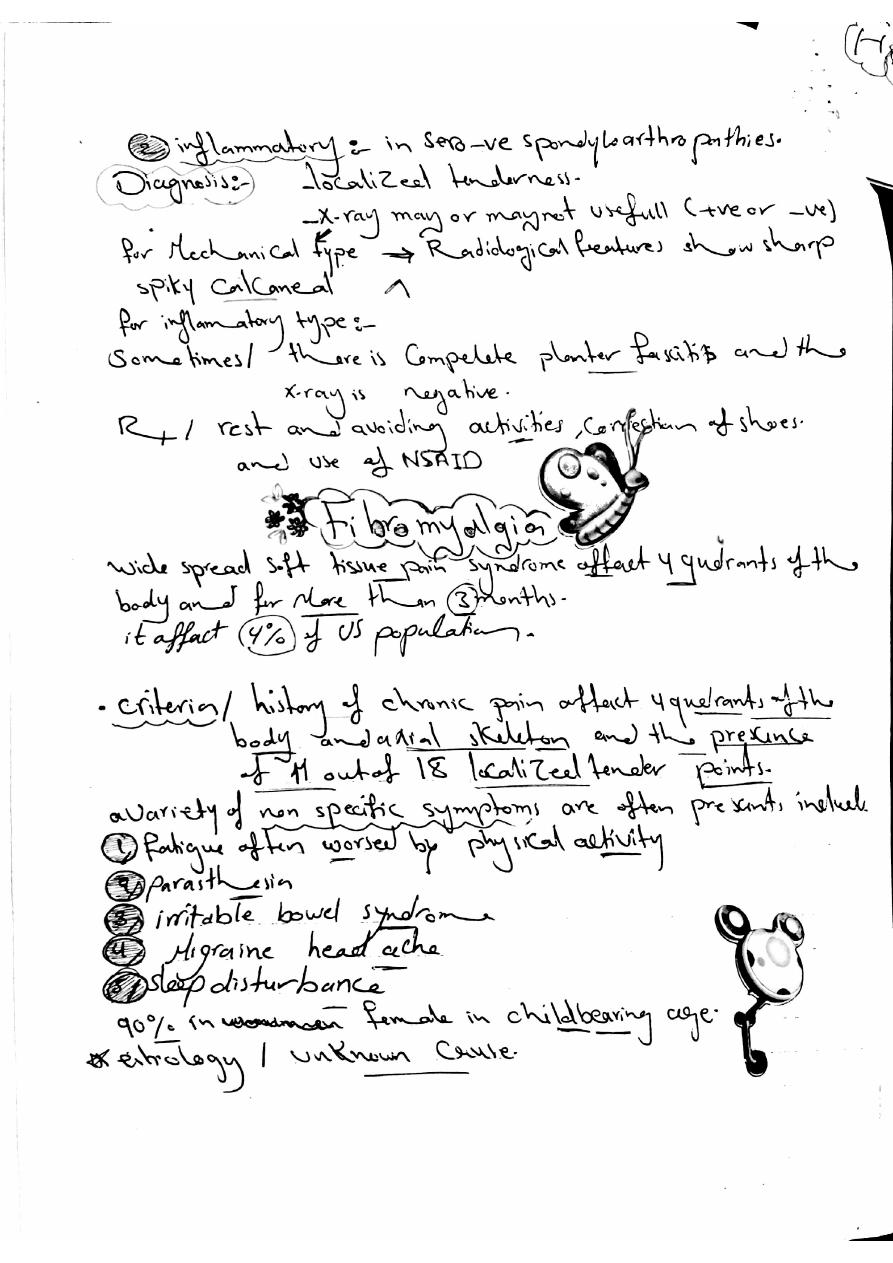 ② inflammatory :- in sero -ve spondyloarthropathies.
Diagnosis:- - localized tenderness.
- X-ray may or may not usefull (+ve or -ve)
for Mechanical type → Radiological features show sharp
spiky calcaneal ^
for inflamatory type:-
Sometimes/ there is Compelete planter fasciitis and the
x-ray is negative.
R+/ rest and avoiding activities, Correction of shoes.
and use of NSAID
Fibromyalgia
wide spread soft tissue pain syndrome affect 4 qudrants of the
body and for More than ③ months.
it affect 4% of US population.
• criteria/ history of chronic pain affect 4 qudrants of the
body and axial skeleton and the presence
of 11 out of 18 localized tender points.
a variety of non specific symptoms are often presents include
① fatigue often worsed by physical activity
② parasthesia
③ irritable bowel syndrome
④ Migraine head ache
⑤ sleep disturbance
90% in female in childbearing age.
* etiology / unknown Cause.